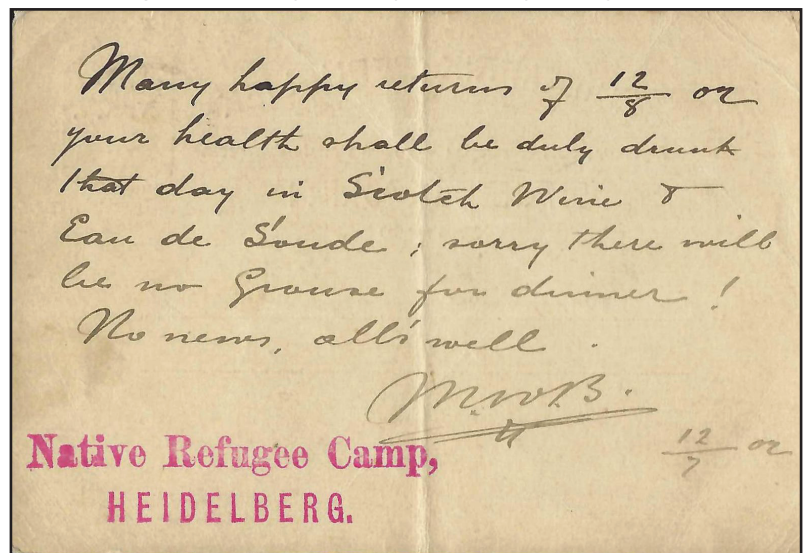 Many happy returns of 12/8 02
your health shall be duly drunk
that day in Scotch Wine &
Eau de Soude ; sorry there will
be no Grouse for dinner !
No news, all's well .
M.W.B.
12/7 02
Native Refugee Camp,
HEIDELBERG.